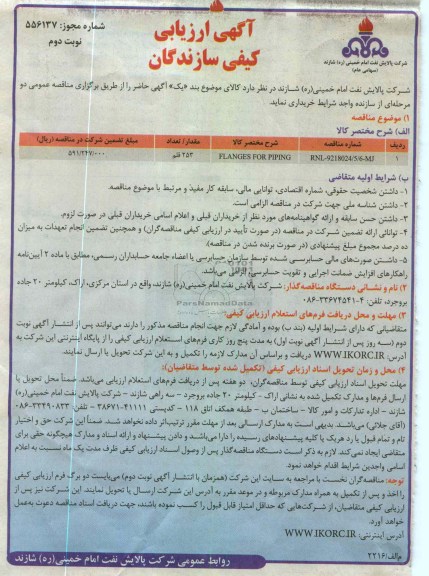 شماره مجوز: ۵۵۶۱۳۷
نوبت دوم
آگهی ارزیابی
کیفی سازندگان
شرکت پالایش نفت امام خمینی (ره) شازند
(سهامی عام)
شرکت پالایش نفت امام خمینی(ره) شازند در نظر دارد کالای موضوع بند «یک» آگهی حاضر را از طریق برگزاری مناقصه عمومی دو
مرحله‌ای از سازنده واجد شرایط خریداری نماید.
۱) موضوع مناقصه
الف) شرح مختصر کالا
ردیف شماره مناقصه شرح مختصر کالا مقدار/ تعداد مبلغ تضمین شرکت در مناقصه (ریال)
۱ RNL-9218024/5/6-MJ FLANGES FOR PIPING ۲۵۳ قلم ۵۹۱/۲۴۷/۰۰۰
ب) شرایط اولیه متقاضی
۱- داشتن شخصیت حقوقی، شماره اقتصادی، توانایی مالی، سابقه کار مفید و مرتبط با موضوع مناقصه.
۲- داشتن شناسه ملی جهت شرکت در مناقصه الزامی است.
۳- داشتن حسن سابقه و ارائه گواهینامه‌های مورد نظر از خریداران قبلی و اعلام اسامی خریداران قبلی در صورت لزوم.
۴- توانائی ارائه تضمین شرکت در مناقصه (در صورت تأیید در ارزیابی کیفی مناقصه‌گران) و همچنین تضمین انجام تعهدات به میزان
ده درصد مجموع مبلغ پیشنهادی (در صورت برنده شدن در مناقصه).
۵- داشتن صورت‌های مالی حسابرسی شده توسط سازمان حسابرسی یا اعضاء جامعه حسابداران رسمی، مطابق با ماده ۲ آیین‌نامه
راهکارهای افزایش ضمانت اجرایی و تقویت حسابرسی، الزامی می‌باشد.
۲) نام و نشانی دستگاه مناقصه‌گذار: شرکت پالایش نفت امام خمینی(ره) شازند، واقع در استان مرکزی، اراک، کیلومتر ۲۰ جاده
بروجرد، تلفن: ۴-۳۳۶۷۴۵۴۱-۰۸۶
۳) مهلت و محل دریافت فرم‌های استعلام ارزیابی کیفی:
متقاضیانی که دارای شرایط اولیه (بند ب) بوده و آمادگی لازم جهت انجام مناقصه مذکور را دارند می‌توانند پس از انتشار آگهی نوبت
دوم (سه روز پس از انتشار آگهی نوبت اول) به مدت پنج روز کاری فرم‌های استعلام ارزیابی کیفی را از پایگاه اینترنتی این شرکت به
آدرس WWW.IKORC.IR دریافت و براساس آن مدارک لازمه را تکمیل و به این شرکت تحویل یا ارسال نمایند.
۴) محل و زمان تحویل اسناد ارزیابی کیفی (تکمیل شده توسط متقاضیان):
مهلت تحویل اسناد ارزیابی کیفی توسط مناقصه‌گران، دو هفته پس از دریافت فرم‌های استعلام ارزیابی می‌باشد. ضمناً محل تحویل یا
ارسال فرم‌ها و مدارک تکمیل شده به نشانی اراک - کیلومتر ۲۰ جاده بروجرد - سه راهی شازند - شرکت پالایش نفت امام خمینی(ره)
شازند - اداره تدارکات و امور کالا - ساختمان ب - طبقه همکف اتاق ۱۱۸ - کدپستی ۴۱۱۱۱-۳۸۶۷۱ - تلفن: ۳۳۴۹۰۸۳۳-۰۸۶
(آقای جلائی) می‌باشند. بدیهی است به مدارک ارسالی بعد از مهلت مقرر ترتیب‌اثر داده نخواهد شد. ضمناً این شرکت حق و اختیار
تام و تمام قبول یا رد هریک یا کلیه پیشنهادهای رسیده را دارا می‌باشد و دادن پیشنهاد و ارائه اسناد و مدارک هیچگونه حقی برای
متقاضی ایجاد نمی‌کند. لازم به ذکر است دستگاه مناقصه‌گذار پس از وصول اسناد ارزیابی کیفی ظرف مدت یک ماه نسبت به اعلام
اسامی واجدین شرایط اقدام خواهد نمود.
توجه: مناقصه‌گران نخست با مراجعه به سایت این شرکت (همزمان با انتشار آگهی نوبت دوم) می‌بایست دو برگ فرم ارزیابی کیفی
را اخذ و پس از تکمیل به همراه مدارک مربوطه و در موعد مقرر به آدرس این شرکت ارسال یا تحویل نمایند. این شرکت نیز پس از
ارزیابی کیفی متقاضیان، از شرکت‌هایی که حداقل امتیاز قابل قبول را کسب نموده باشند، جهت دریافت اسناد مناقصه دعوت به‌عمل
خواهد آورد.
آدرس اینترنتی: WWW.IKORC.IR
م‌الف/۲۲۱۶
روابط عمومی شرکت پالایش نفت امام خمینی(ره) شازند
ParsNamadData